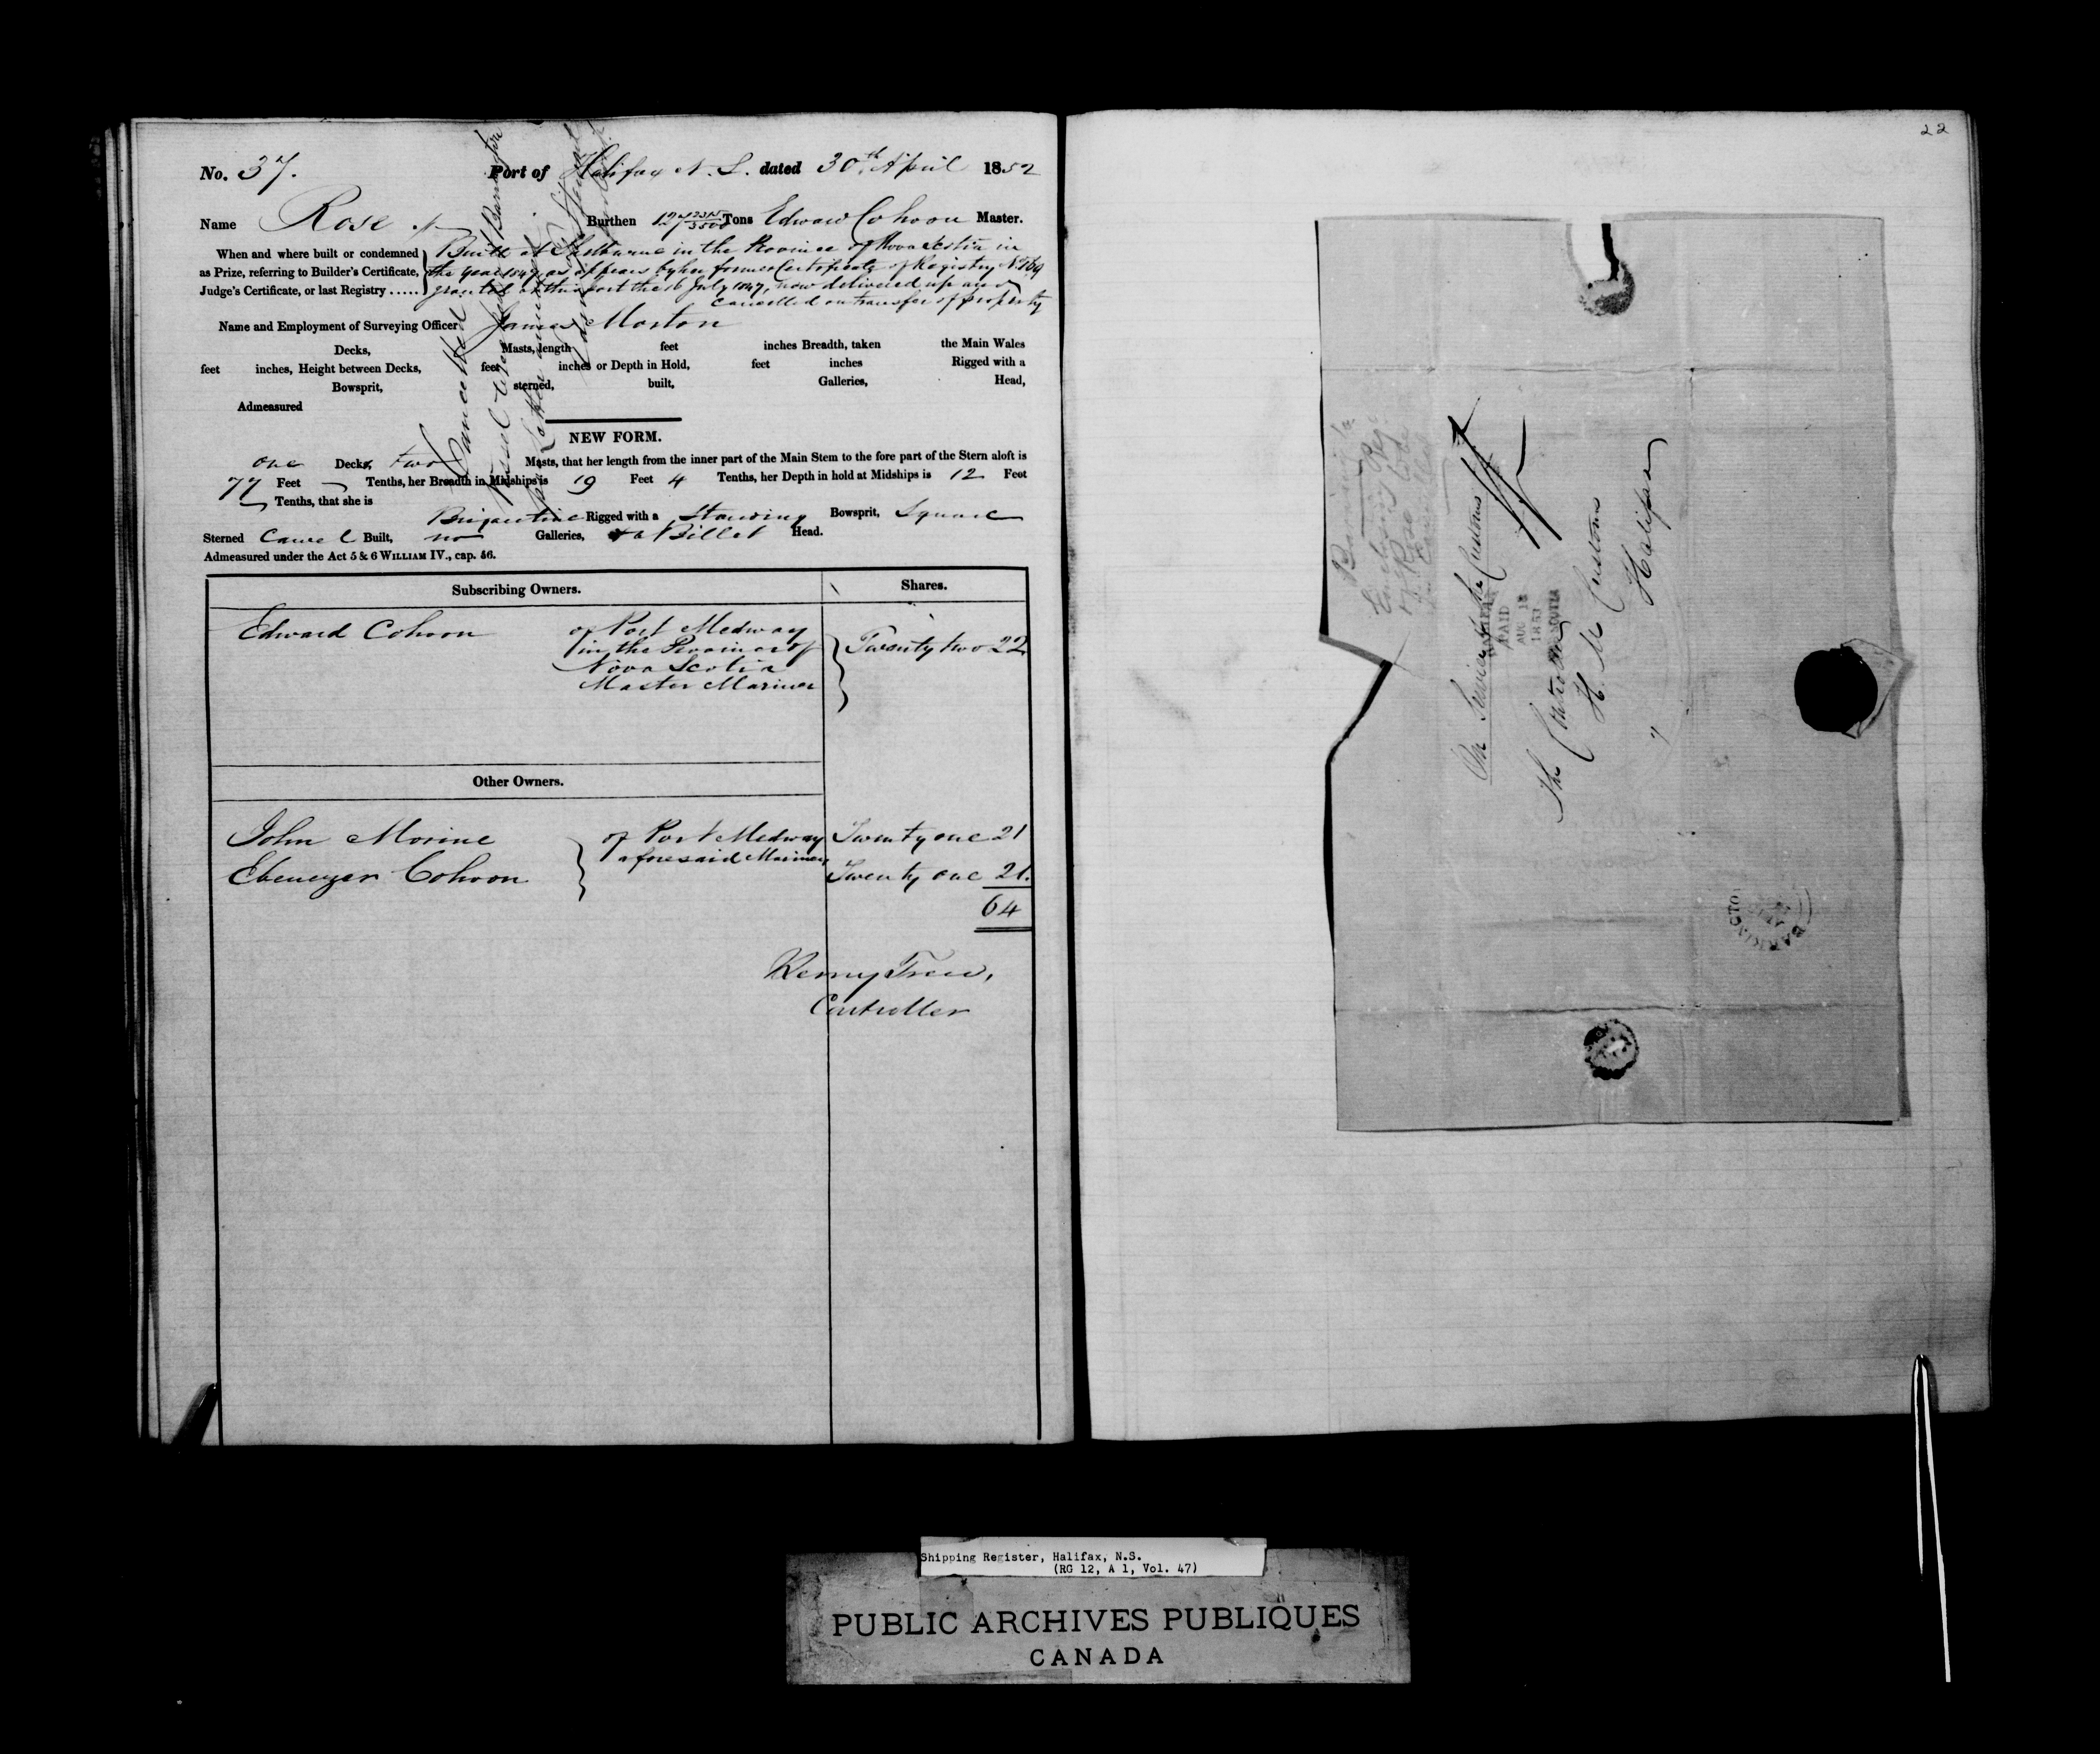 No. 37. Port of Halifax N. S. dated 30th April 1852
Name Rose Burthen 127 2315/3500 Tons Edward Cohoon Master.
When and where built or condemned as Prize, referring to Builder's Certificate, Judge's Certificate, or last Registry ......
Built at Shelburne in the Province of Nova Scotia in
the year 1847, as appears by her former Certificate of Registry No. 169
granted at this port the 16 July 1847, now delivered up and
cancelled on transfer of property
Name and Employment of Surveying Officer James Morton
Decks, Masts, length feet inches Breadth, taken the Main Wales
feet inches, Height between Decks, feet inches or Depth in Hold, feet inches Rigged with a
Bowsprit, sterned, built, Galleries, Head,
Admeasured
Cancelled
NEW FORM.
one Decks, two Masts, that her length from the inner part of the Main Stem to the fore part of the Stern aloft is
77 Feet Tenths, her Breadth in Midships is 19 Feet 4 Tenths, her Depth in hold at Midships is 12 Feet
Tenths, that she is
Brigantine Rigged with a Standing Bowsprit, Square
Sterned Carvel Built, no Galleries, & a Billet Head.
Admeasured under the Act 5 & 6 WILLIAM IV., cap. 56.
Subscribing Owners. Shares.
Edward Cohoon of Port Medway
in the Province of Twenty two 22
Nova Scotia
Master Mariner
Other Owners.
John Morine of Port Medway Twenty one 21
aforesaid Mariners
Ebenezer Cohoon Twenty one 21.
64
Henry Trew,
Controller
22
On Service of the Customs
PAID
AUG 18
1853
The Controller
H. M Customs
Halifax
Shipping Register, Halifax, N.S.
(RG 12, A 1, Vol. 47)
PUBLIC ARCHIVES PUBLIQUES
CANADA